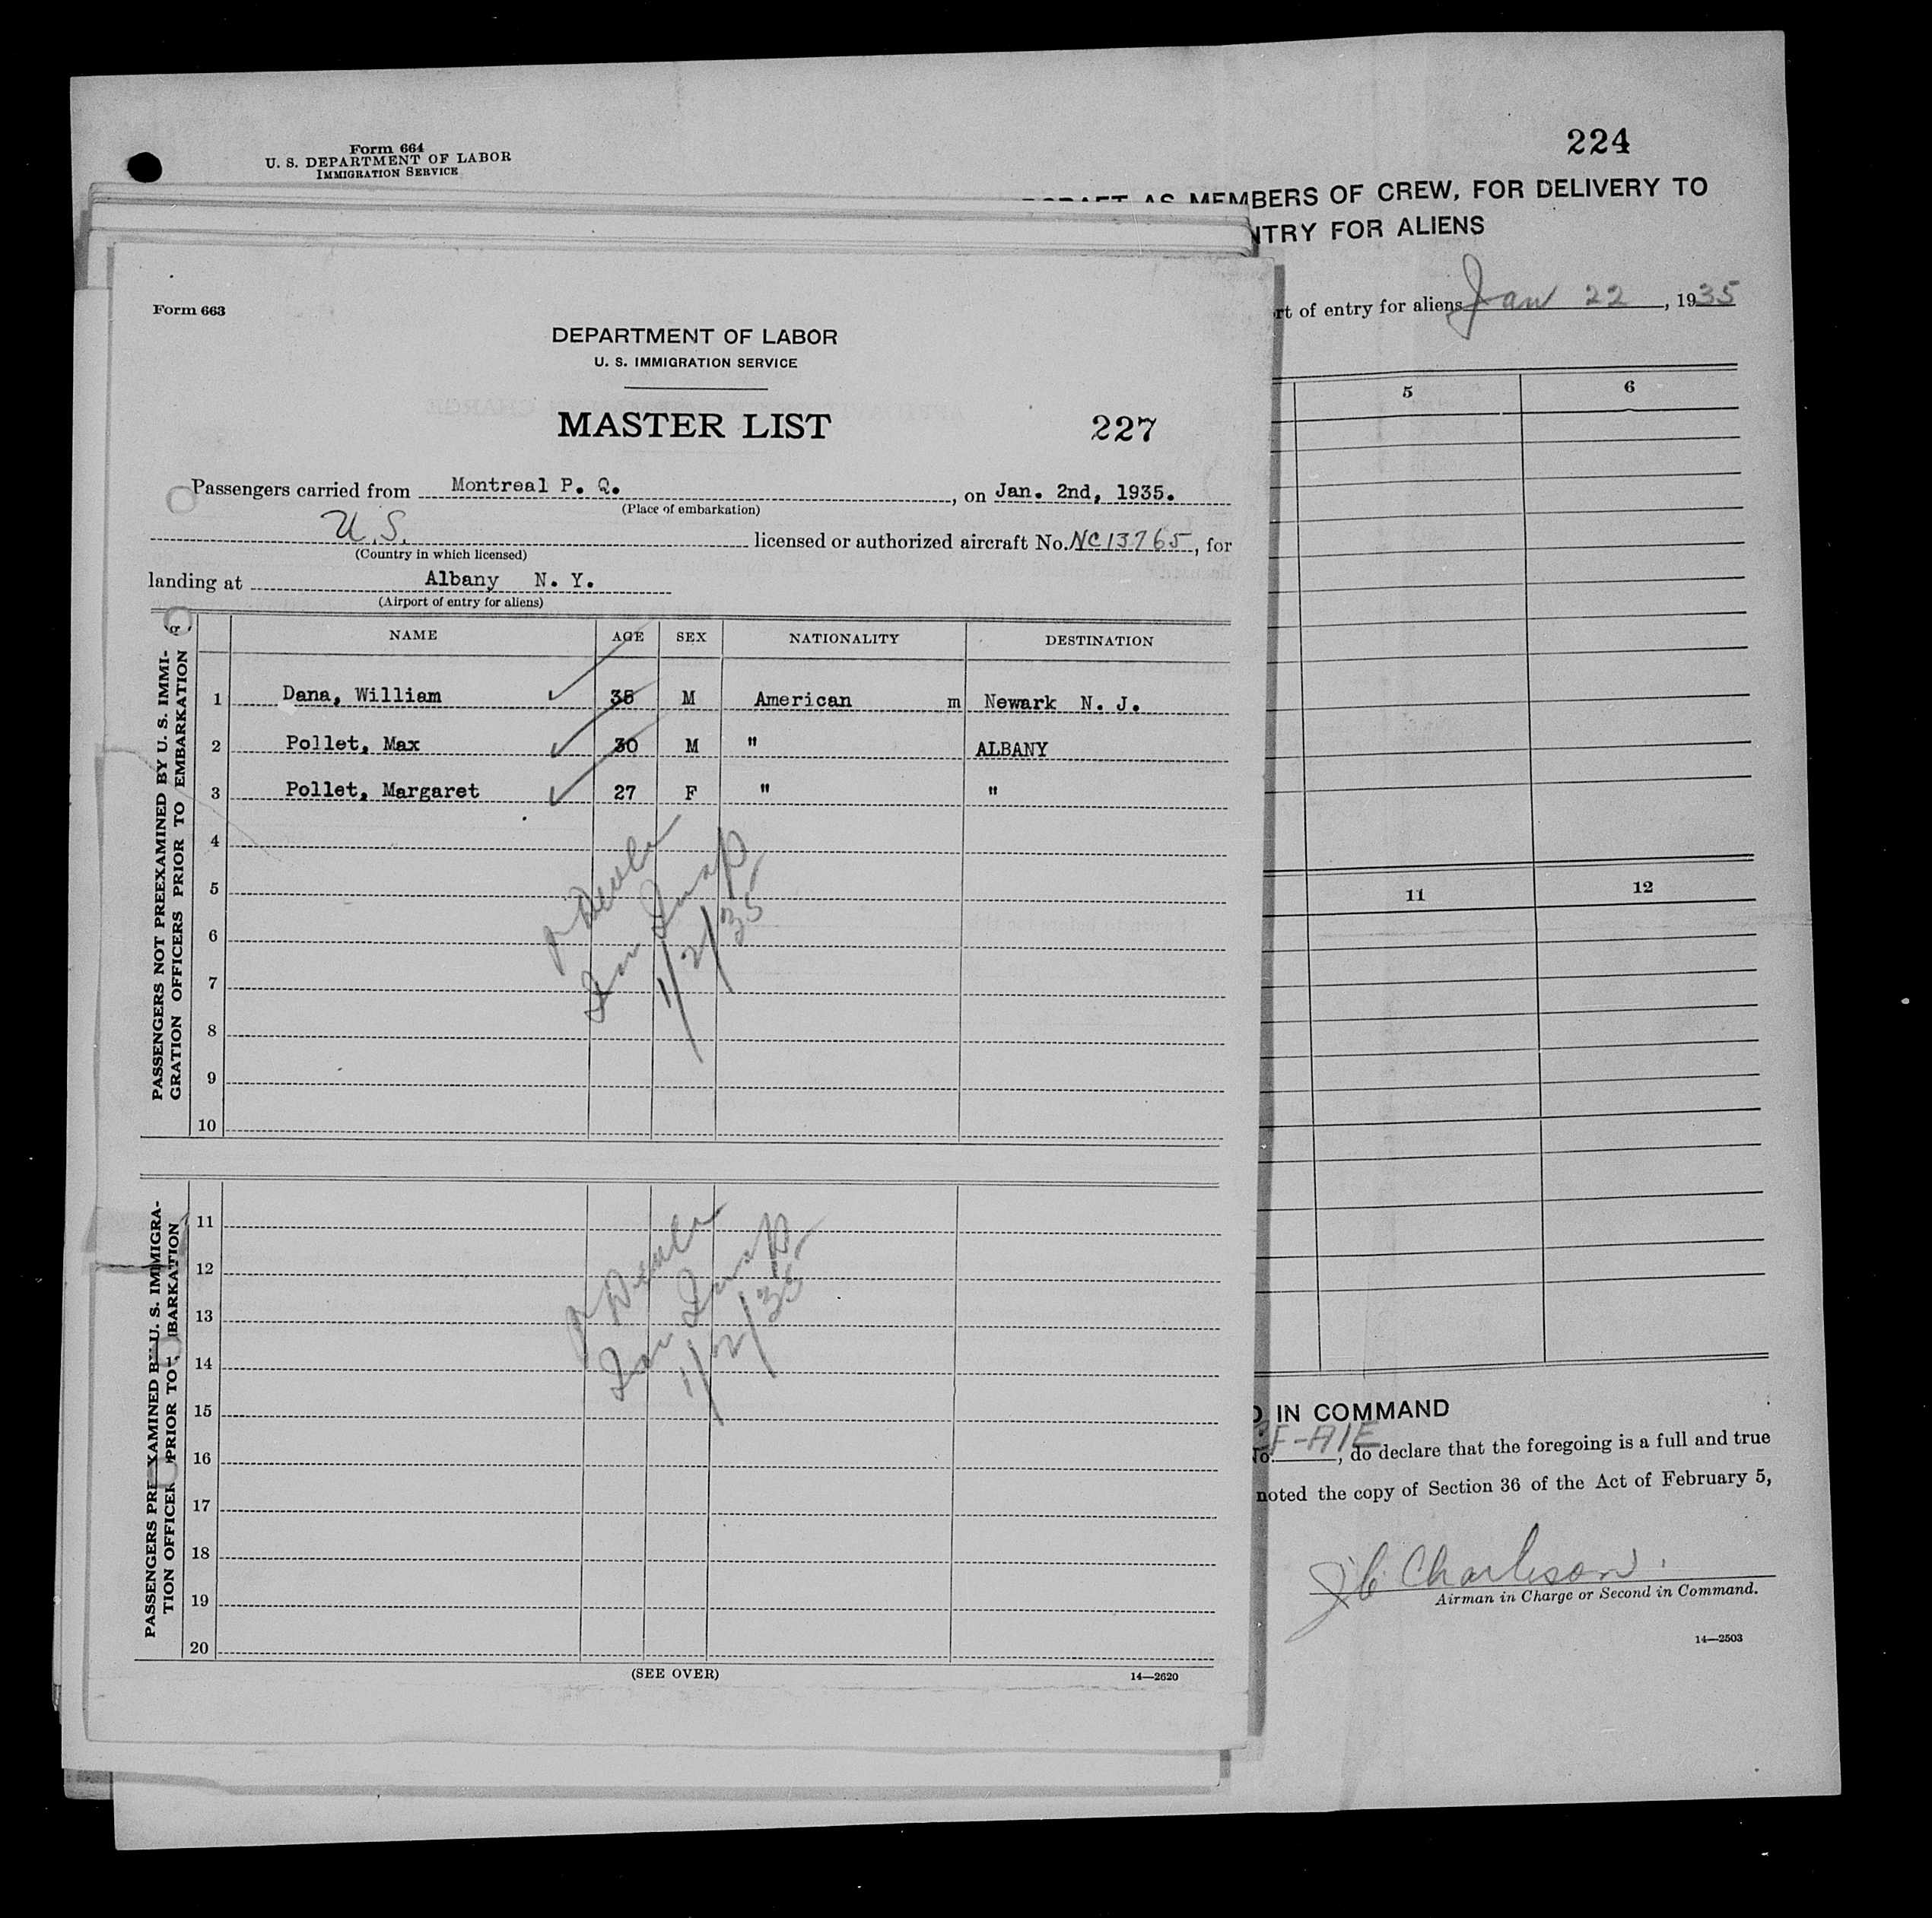 Form 664
U. S. DEPARTMENT OF LABOR
IMMIGRATION SERVICE
224
AS MEMBERS OF CREW, FOR DELIVERY TO
NTRY FOR ALIENS
rt of entry for aliens Jan 22, 1935
5 6
11 12
IN COMMAND
No. CF-AIE, do declare that the foregoing is a full and true
noted the copy of Section 36 of the Act of February 5,
Airman in Charge or Second in Command.
14—2503
Form 663
DEPARTMENT OF LABOR
U. S. IMMIGRATION SERVICE
MASTER LIST 227
Passengers carried from Montreal P. Q., on Jan. 2nd, 1935.
(Place of embarkation)
U.S. licensed or authorized aircraft No. NC13765, for
(Country in which licensed)
landing at Albany N. Y.
(Airport of entry for aliens)
NAME AGE SEX NATIONALITY DESTINATION
PASSENGERS NOT PREEXAMINED BY U. S. IMMI-
GRATION OFFICERS PRIOR TO EMBARKATION
1 Dana, William 35 M American m Newark N. J.
2 Pollet, Max 30 M " ALBANY
3 Pollet, Margaret 27 F " "
4
5
6
7
8
9
10
1/2/35
PASSENGERS PREEXAMINED BY U. S. IMMIGRA-
TION OFFICER PRIOR TO BARKATION
11
12
13
14
15
16
17
18
19
20
1/2/35
(SEE OVER)
14—2620